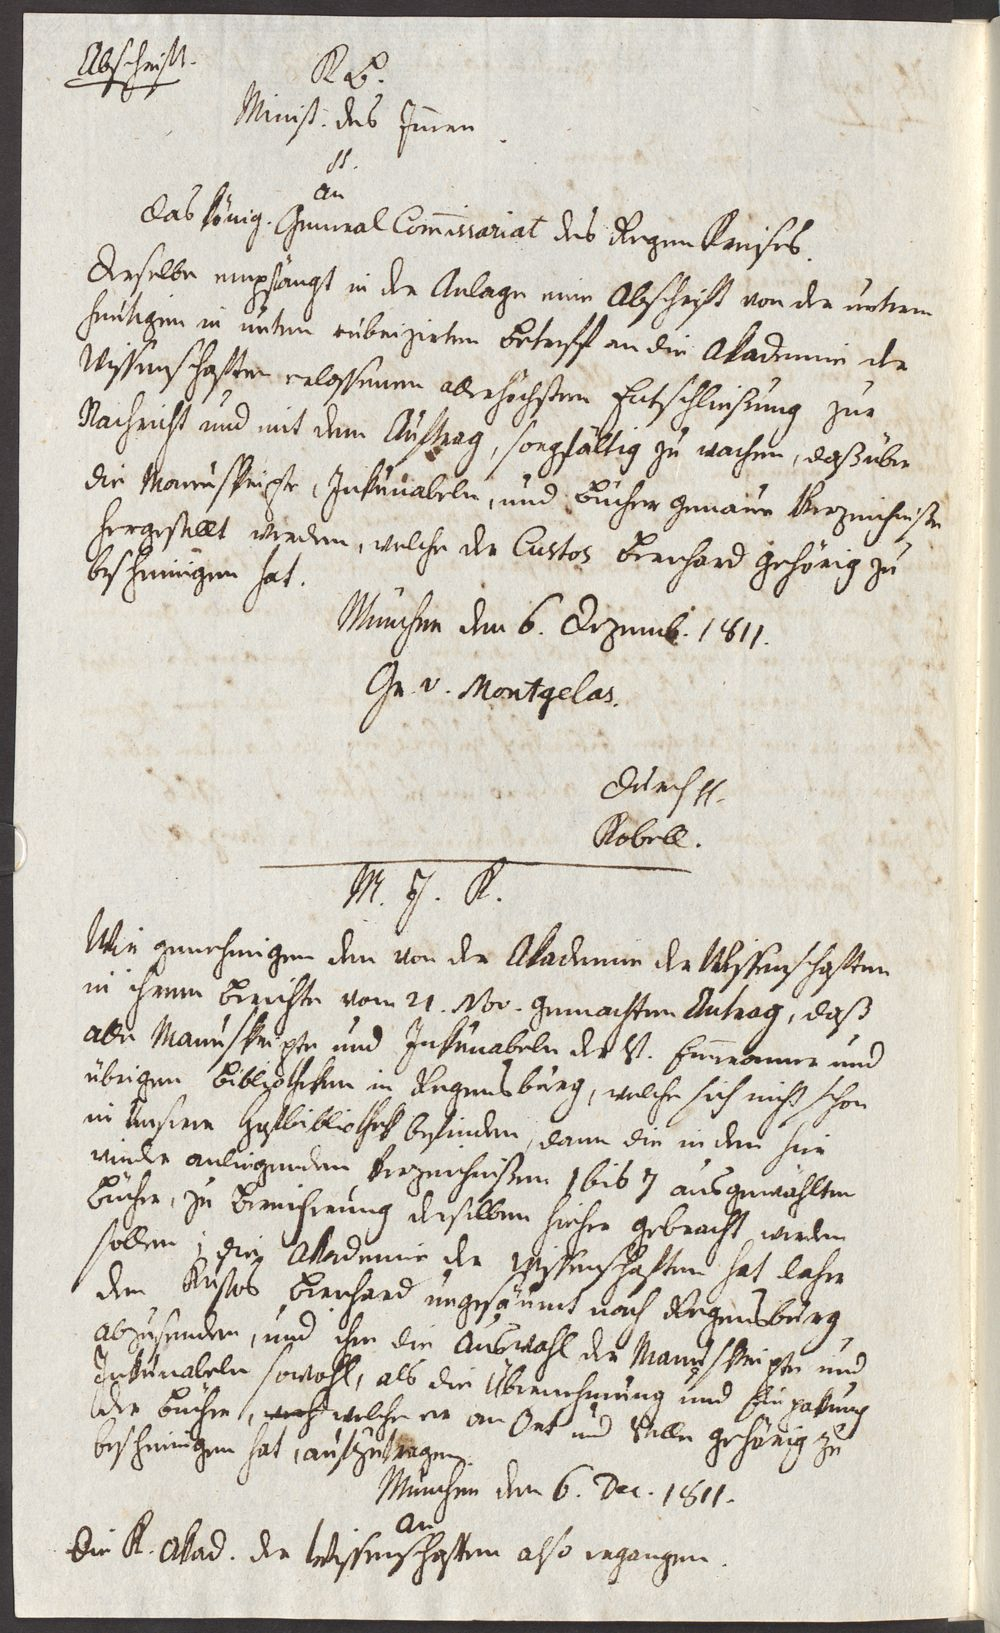 Abschrift.
K B.
Minist. des Innern
an
das könig. General Commissariat des Regen Kreises.
Derselbe empfängt in der Anlage eine Abschrift von der unterm
heutigen in untem rubrizirten Betreff an die Akademie der
Wissenschaften erlassenen allerhöchsten Entschliesung zur
Nachricht und mit dem Auftrag, sorgfältig zu wachen, daß über
die Manuskripte, Inkunabeln, und Bücher genaue Verzeichniße
hergestellt werden, welche der Custos Bernhard gehörig zu
bescheinigen hat.
München den 6. Dezemb. 1811.
Gr. v. Montgelas.
Durch
Kobell.
M. J. K.
Wir genehmigen den von der Akademie der Wissenschaften
in ihrem Berichte vom 21. Nov. gemachten Antrag, daß
alle Manuskripte und Inkunabeln der St. Emmeramer und
übrigen Bibliotheken in Regensburg, welche sich nicht schon
in Unserer Hofbibliothek befinden, dann die in den hier
wieder anliegenden Verzeichnißen 1 bis 7 ausgewählten
Bücher, zu Bereicherung derselben hieher gebracht werden
sollen; die Akademie der Wissenschaften hat daher
den Kustos Bernhard ungesäumt nach Regensburg
abzusenden, und ihm die Auswahl der Manuskripte und
Inkunabeln sowohl, als die Übernehmung und Einpakung
der Bücher, welche er an Ort und Stelle gehörig zu
bescheinigen hat, aufzutragen.
München den 6. Dec. 1811.
an
Die K. Akad. der Wissenschaften also ergangen.